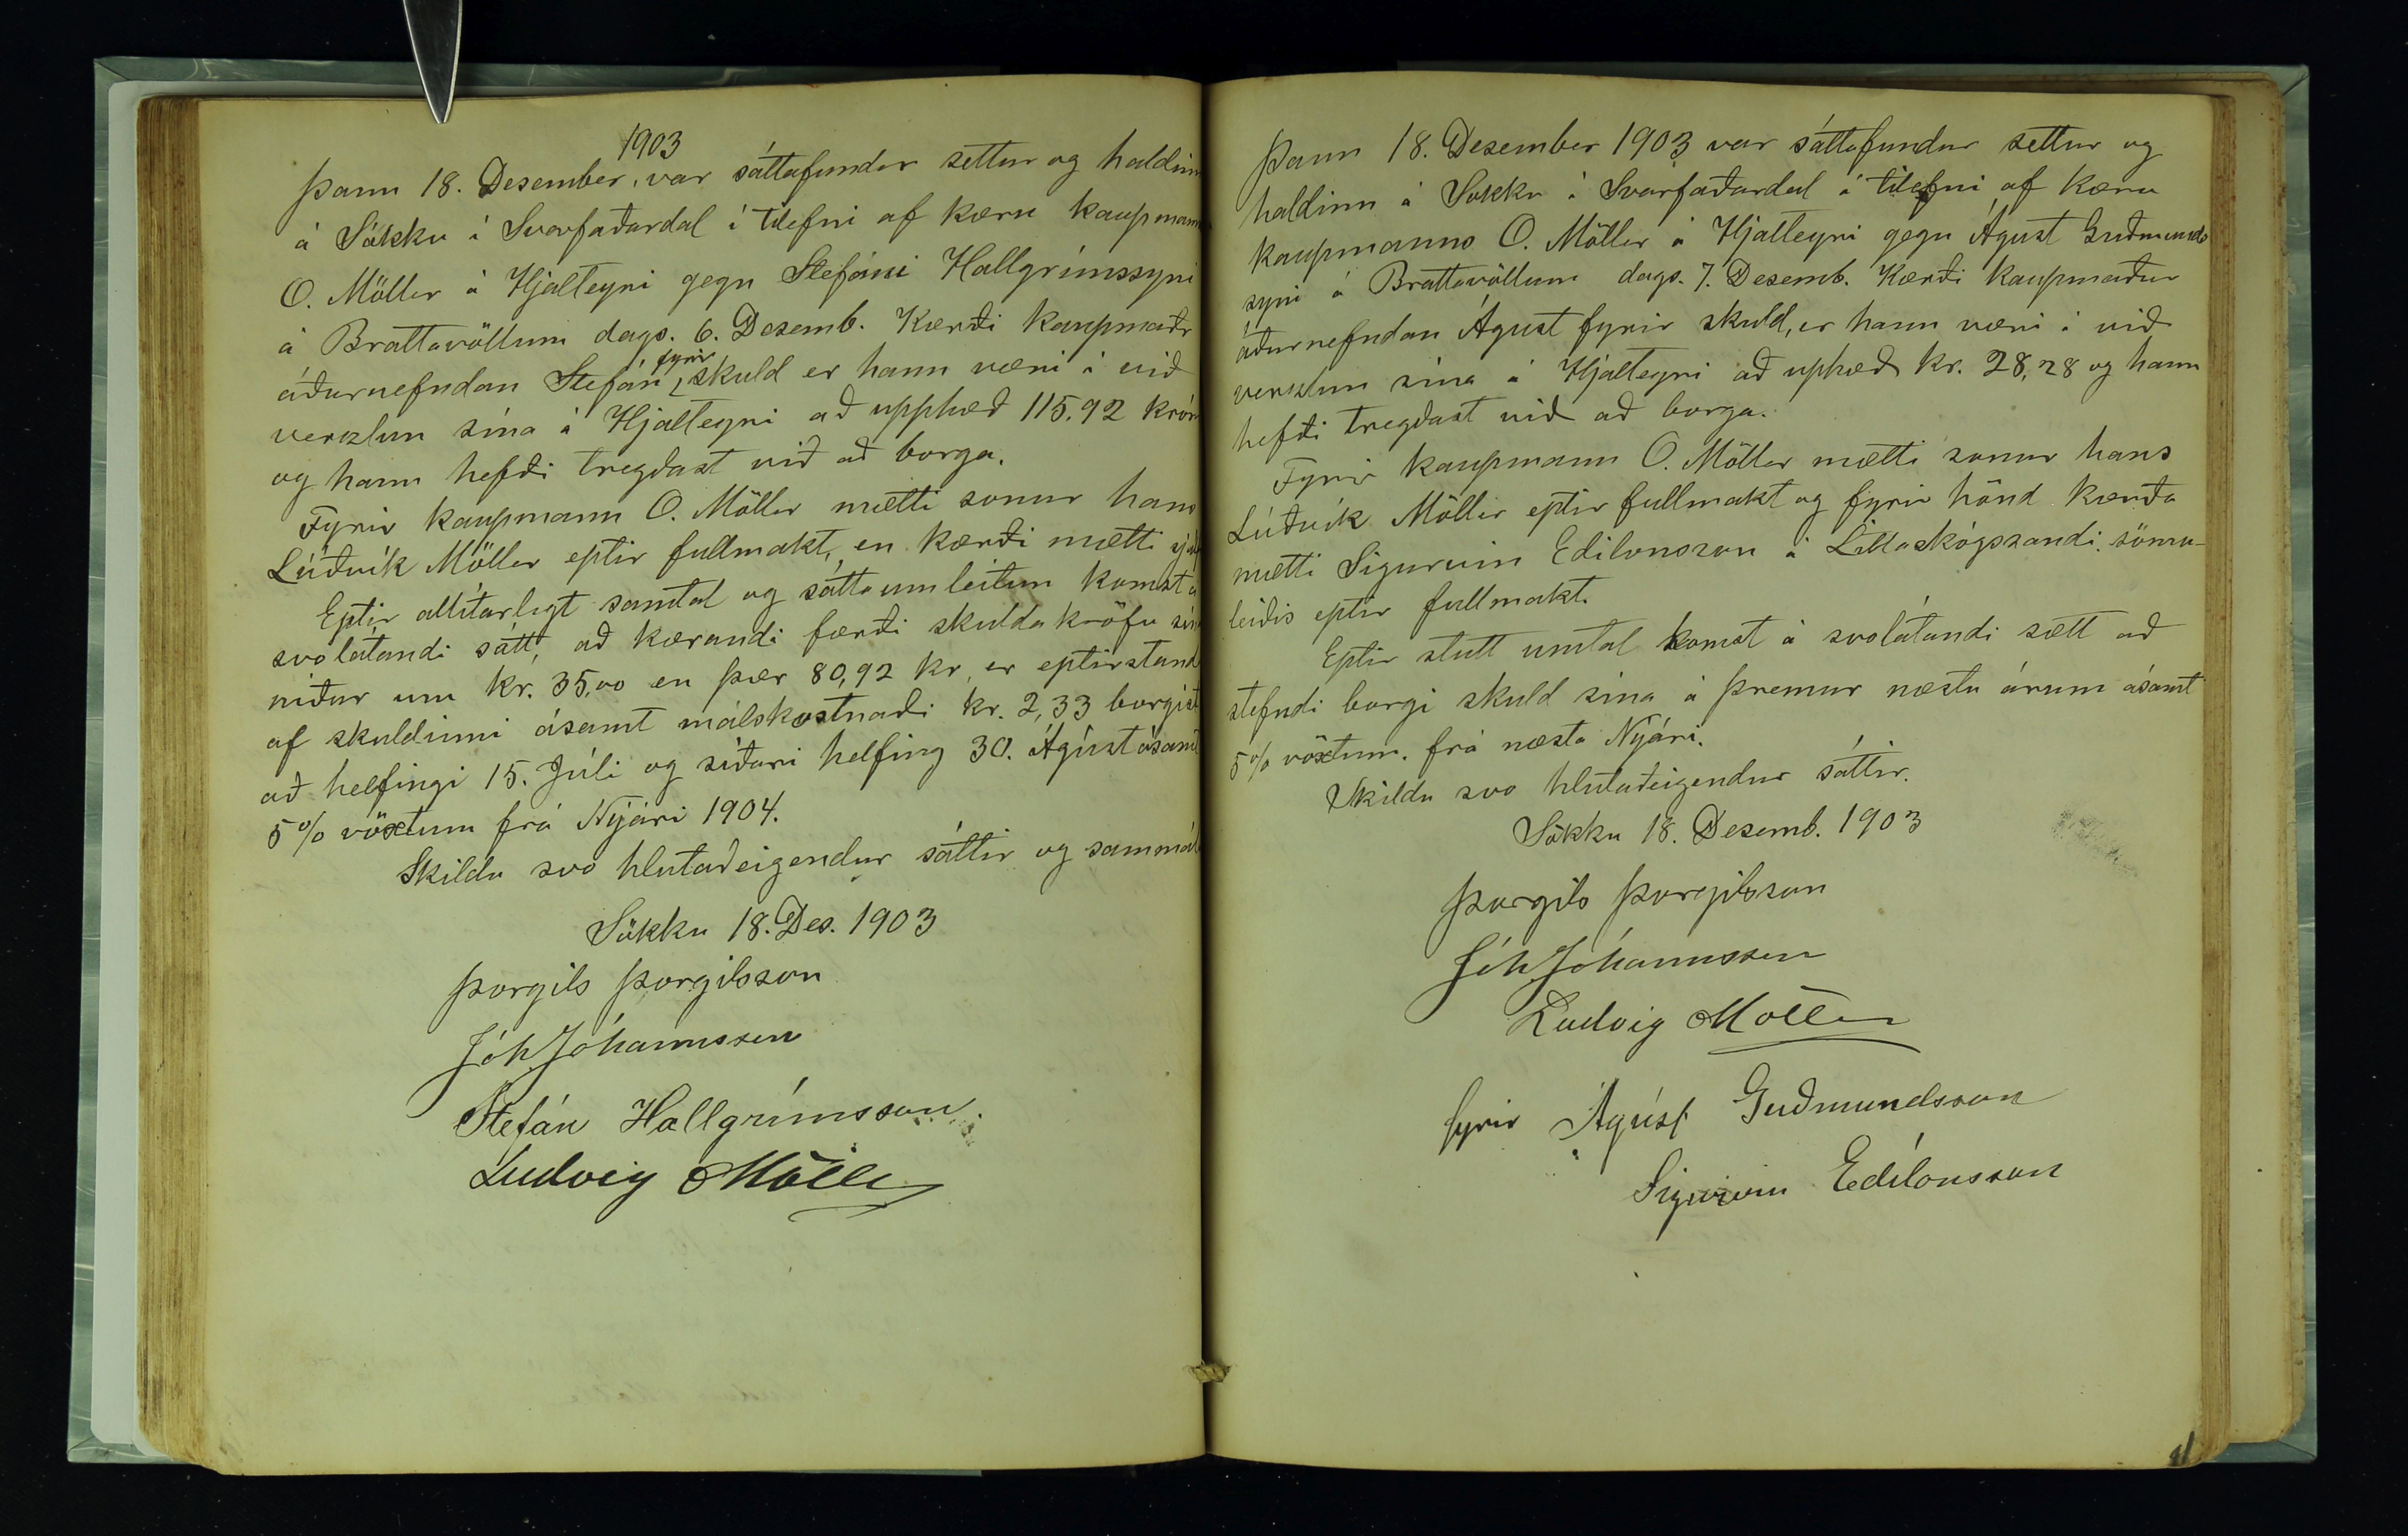 1903
Þann 18. Desember, var sáttafundur settur og haldinn
á Sökku í Svarfaðardal í tilefni af kæru kaupmanns
O. Möller á Hjalteyri gegn Stefáni Hallgrímssyni
á Brattavöllum dags. 6. Desemb. Kærði kaupmaðr
fyrir
áðurnefndan Stefán skuld er hann væri í við
verzlun sína á Hjalteyri að upphæð 115.92 krón
og hann hefði tregðast við að borga.
Fyrir kaupmann O. Möller mætti sonur hans
Lúðvík Möller eptir fullmakt, en kærði mætti sjál
Eptir allítarligt samtal og sáttaumleitun komst á
svolátandi sátt, að kærandi færði skuldakröfu sín
niður um kr. 35,00 en þær 80,92 kr, er eptirstand
af skuldinni ásamt málskostnaði kr. 2,33 borgist
að helfingi 15. Júli og síðari helfing 30. Ágúst ásamt
5% vöxtum frá Nýári 1904.
Skildu svo hlutaðeigendur sáttir og sammál
Sökku 18. Des. 1903
Þorgils Þorgilsson
Jóh Jóhannsson
Stefán Hallgrímsson.
Ludvig Möller
Þann 18. Desember 1903 var sáttafundur settur og
haldinn á Sökku í Svarfaðardal í tilefni af kæru
kaupmanns O. Möller á Hjalteyri gegn Ágúst Guðmunds
syni á Brattavöllum dags. 7. Desemb. Kærði kaupmaður
áðurnefndan Águst fyrir skuld, er hann væri í við
verzlun sína á Hjalteyri að uphæð kr. 28,28 og hann
hefði tregðast við að borga.
Fyrir kaupmann O. Möller mætti sonur hans
Lúðvík Möller eptir fullmakt og fyrir hönd kærða
mætti Sigurvin Edilonsson á Litlaskógssandi sömu-
leiðis eptir fullmakt.
Eptir stutt umtal komst á svolátandi sætt að
stefndi borgi skuld sína á þremur næstu árum ásamt
5% vöxtum. frá næsta Nýári.
Skildu svo hlutaðeigendur sáttir.
Sökku 18. Desemb. 1903
Þorgils Þorgilsson
Jóh Jóhannsson
Ludvig Möller
fyrir Ágúst Guðmundsson
Sigurvin Edílonsson